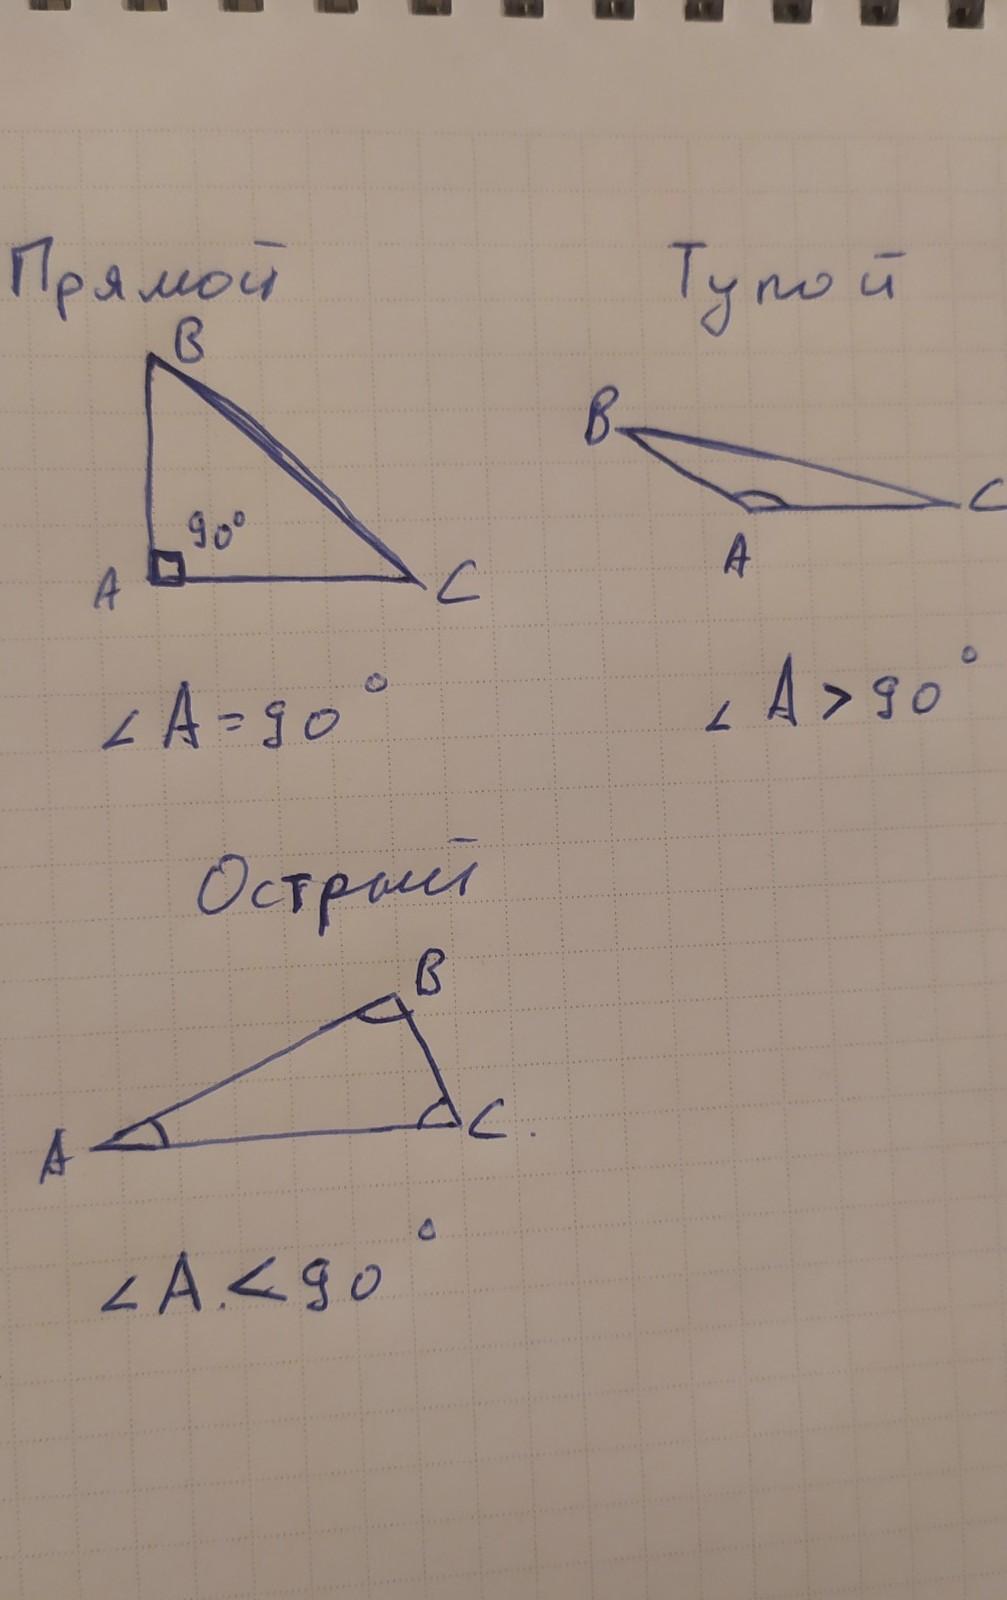 Прямой
B
90°
A
C
∠A=90°
Тупой
B
C
A
∠A>90°
Острый
B
A
C.
∠A.<90°